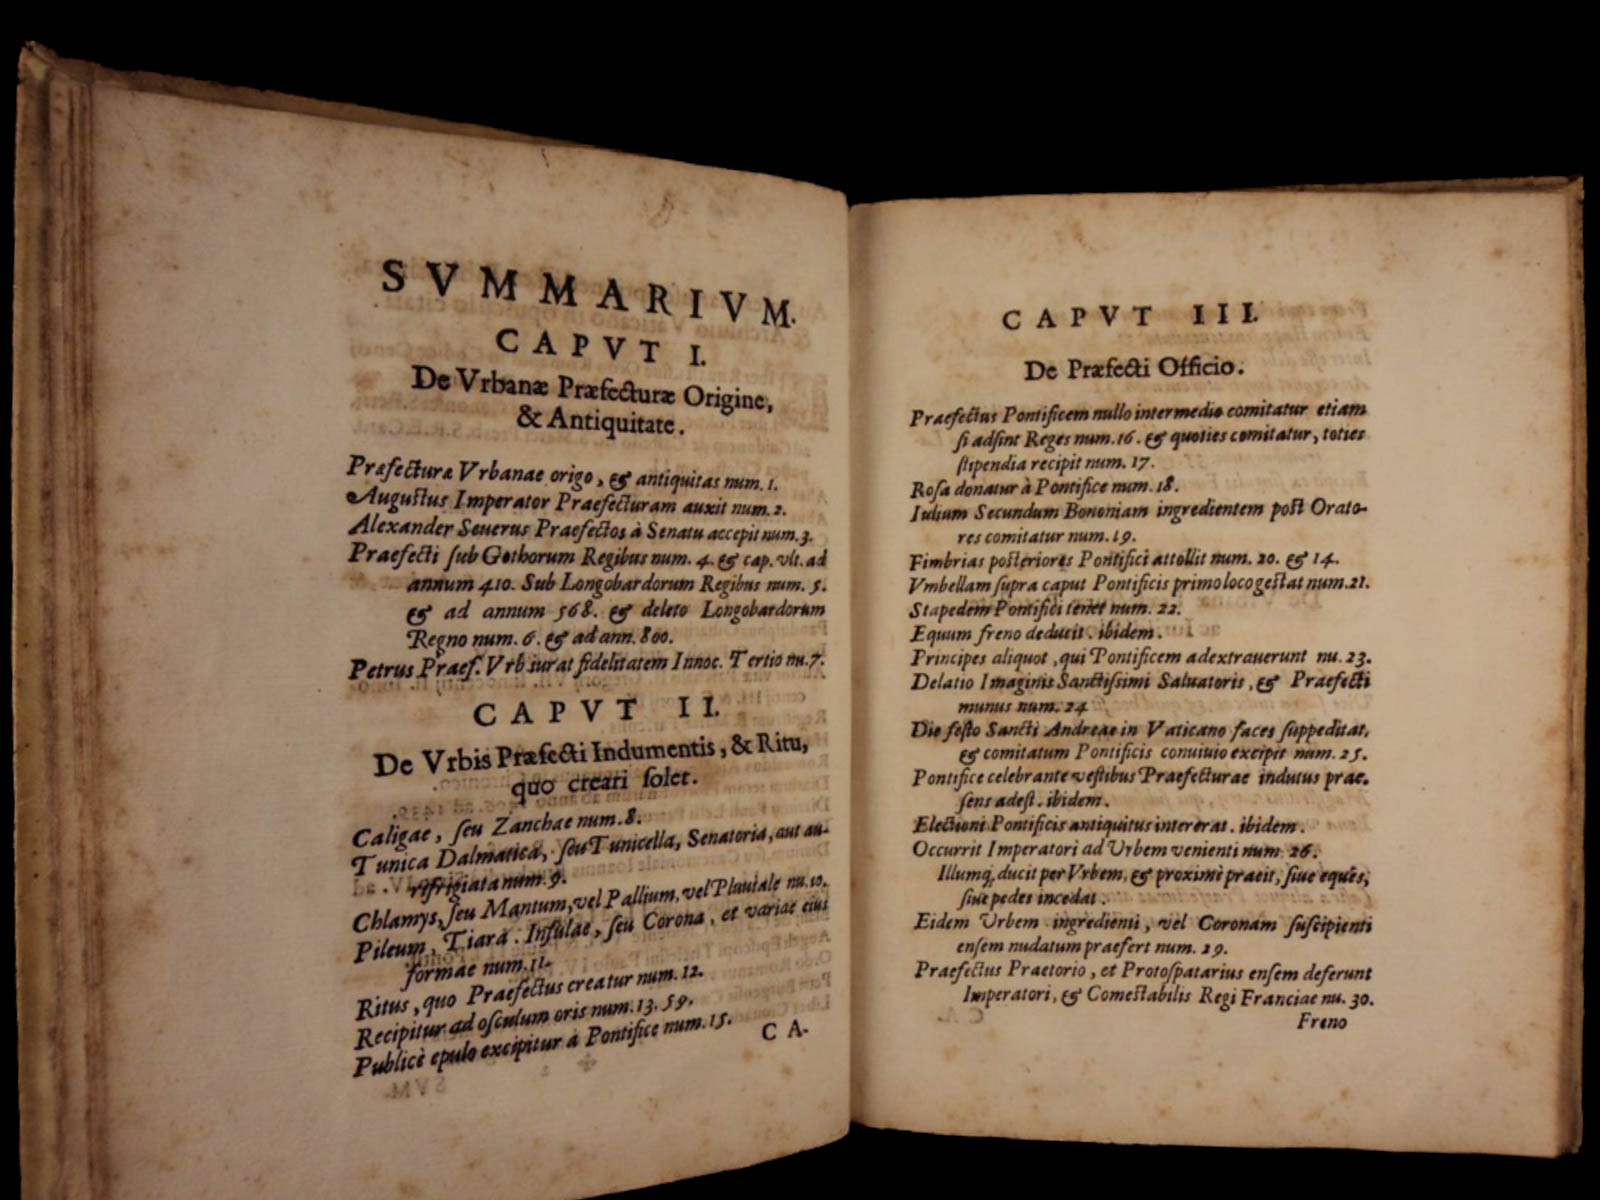 SVMMARIVM.
CAPVT I.
De Vrbanæ Præfecturæ Origine,
& Antiquitate.
Præfecturæ Vrbanae origo, & antiquitas num. 1.
Augustus Imperator Praefecturam auxit num. 2.
Alexander Seuerus Praefectos à Senatu accepit num. 3.
Praefecti ſub Gothorum Regibus num. 4. & cap. vlt. ad
annum 410. Sub Longobardorum Regibus num. 5.
& ad annum 568. & deleto Longobardorum
Regno num. 6. & ad ann. 800.
Petrus Præf. Vrb iurat fidelitatem Innoc. Tertio nu. 7.
CAPVT II.
De Vrbis Præfecti Indumentis, & Ritu,
quo creari ſolet.
Caligae, ſeu Zanchae num. 8.
Tunica Dalmatica, ſeu Tunicella, Senatoria, aut au-
rifrigiata num. 9.
Chlamys, ſeu Mantum, vel Pallium, vel Pluuiale nu. 10.
Pileum, Tiara. Infulae, ſeu Corona, et variae eius
formae num. 11.
Ritus, quo Praefectus creatur num. 12.
Recipitur ad oſculum oris num. 13. 59.
Publicè epulo excipitur à Pontifice num. 15.
CA-
CAPVT III.
De Præfecti Officio.
Praefectus Pontificem nullo intermedio comitatur etiam
ſi adſint Reges num. 16. & quoties comitatur, toties
ſtipendia recipit num. 17.
Roſa donatur à Pontifice num. 18.
Iulium Secundum Bononiam ingredientem poſt Orato-
res comitatur num. 19.
Fimbrias poſteriores Pontifici attollit num. 20. & 14.
Vmbellam ſupra caput Pontificis primo loco geſtat num. 21.
Stapedem Pontifici tenet num. 22.
Equum freno deducit. ibidem.
Principes aliquot, qui Pontificem adextrauerunt nu. 23.
Delatio Imaginis Sanctiſsimi Saluatoris, & Praefecti
munus num. 24
Die feſto Sancti Andreae in Vaticano faces ſuppeditat,
& comitatum Pontificis conuiuio excipit num. 25.
Pontifice celebrante veſtibus Praefecturae indutus prae-
ſens adeſt. ibidem.
Electioni Pontificis antiquitus intererat. ibidem.
Occurrit Imperatori ad Vrbem venienti num. 26.
Illumq; ducit per Vrbem, & proximè praeit, ſiue eques,
ſiue pedes incedat.
Eidem Vrbem ingredienti, vel Coronam ſuſcipienti
enſem nudatum praefert num. 29.
Praefectus Praetorio, et Protoſpatarius enſem deferunt
Imperatori, & Comeſtabilis Regi Franciae nu. 30.
Freno